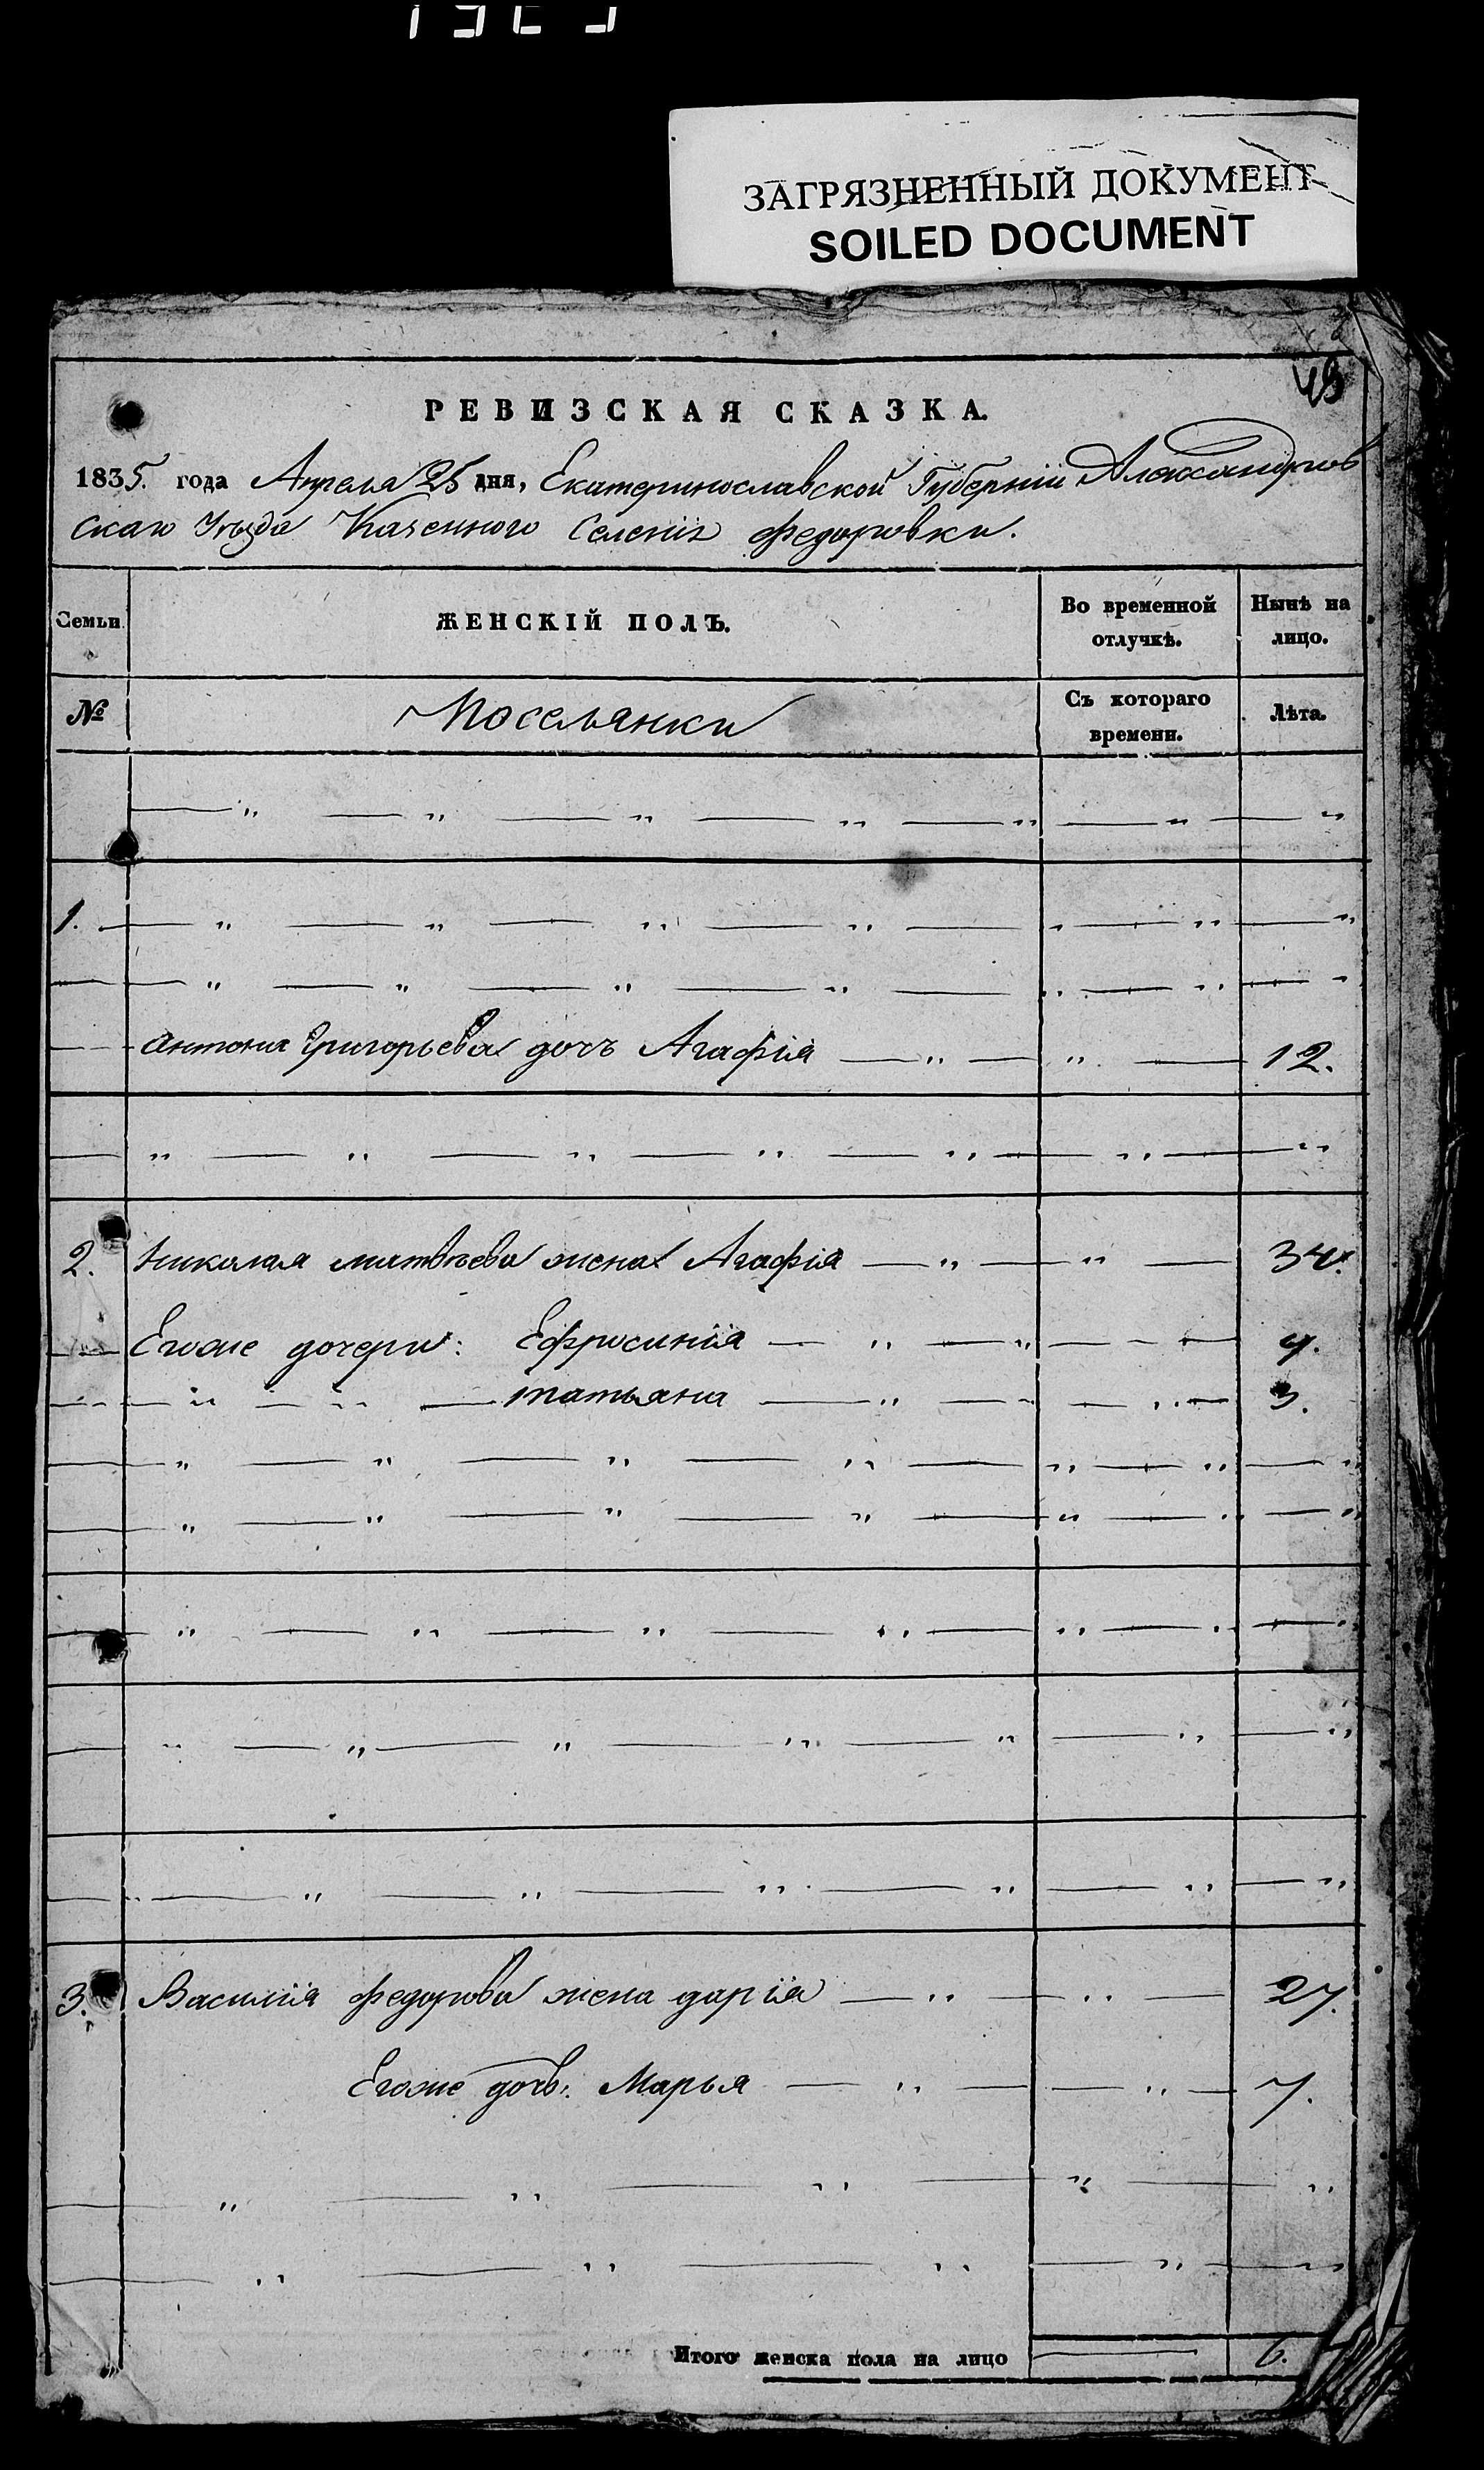 ЗАГРЯЗНЕННЫЙ ДОКУМЕНТ
SOILED DOCUMENT
49
РЕВИЗСКАЯ СКАЗКА.
1835. года Апреля 25 дня, Екатеринославской Губерніи Александров
скаго Уѣзда Казенного Селенія Федоровки.
Семьи.
ЖЕНСКІЙ ПОЛЪ.
Во временной отлучкѣ.
Нынѣ на лицо.
№
Поселянки
Съ котораго времени.
Лѣта.
1.
Антона Григорьева дочь Агафія 12.
2. Николая матвѣева жена Агафія 34.
Егоже дочери: Ефросинія 4.
татьяна 3.
3. Василія федорова жена дарія 27.
Егоже дочь: Марья 7.
Итого женска пола на лицо 6.